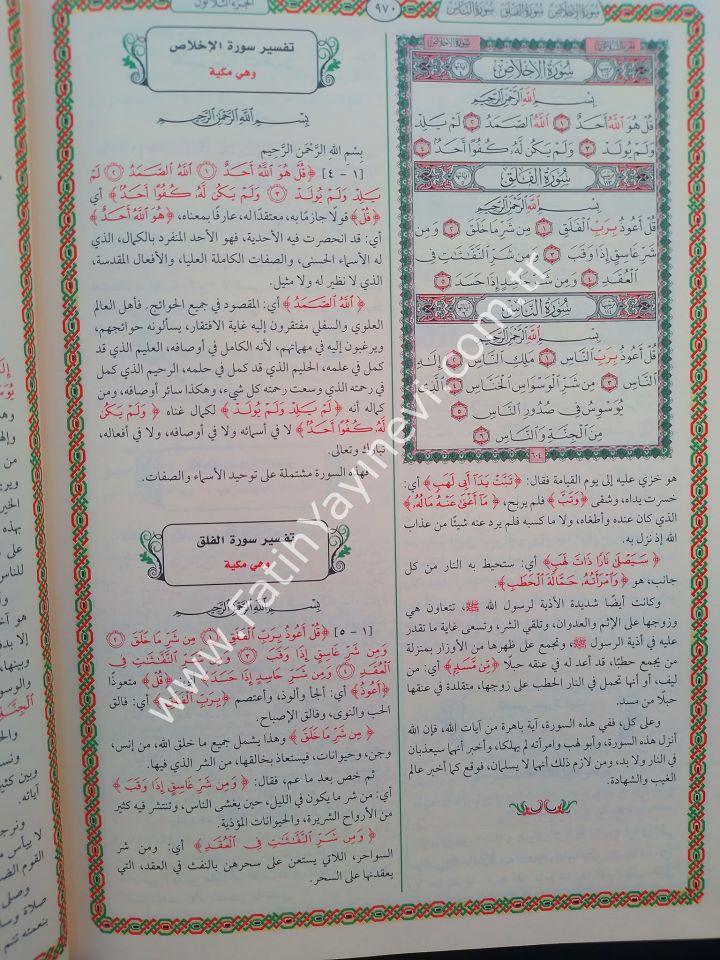 سورة الإخلاص سورة الفلق سورة الناس
٩٧٠
الجزء الثلاثون
سورة الإخلاص
سُورَةُ الإِخْلَاصِ
بِسْمِ اللَّهِ الرَّحْمَٰنِ الرَّحِيمِ
قُلْ هُوَ اللَّهُ أَحَدٌ ١ اللَّهُ الصَّمَدُ ٢ لَمْ يَلِدْ
وَلَمْ يُولَدْ ٣ وَلَمْ يَكُن لَّهُ كُفُوًا أَحَدٌ ٤
سُورَةُ الفَلَقِ
بِسْمِ اللَّهِ الرَّحْمَٰنِ الرَّحِيمِ
قُلْ أَعُوذُ بِرَبِّ الْفَلَقِ ١ مِن شَرِّ مَا خَلَقَ ٢ وَمِن
شَرِّ غَاسِقٍ إِذَا وَقَبَ ٣ وَمِن شَرِّ النَّفَّاثَاتِ فِي
الْعُقَدِ ٤ وَمِن شَرِّ حَاسِدٍ إِذَا حَسَدَ ٥
سُورَةُ النَّاسِ
بِسْمِ اللَّهِ الرَّحْمَٰنِ الرَّحِيمِ
قُلْ أَعُوذُ بِرَبِّ النَّاسِ ١ مَلِكِ النَّاسِ ٢ إِلَٰهِ
النَّاسِ ٣ مِن شَرِّ الْوَسْوَاسِ الْخَنَّاسِ ٤ الَّذِي
يُوَسْوِسُ فِي صُدُورِ النَّاسِ ٥
مِنَ الْجِنَّةِ وَالنَّاسِ ٦
٦٠٤
هو خزي عليه إلى يوم القيامة فقال: ﴿تَبَّتْ يَدَا أَبِي لَهَبٍ﴾ أي:
خسرت يداه، وشقى ﴿وَتَبَّ﴾ فلم يربح، ﴿مَا أَغْنَىٰ عَنْهُ مَالُهُ﴾
الذي كان عنده وأطغاه، ولا ما كسبه فلم يرد عنه شيئًا من عذاب
الله إذ نزل به.
﴿سَيَصْلَىٰ نَارًا ذَاتَ لَهَبٍ﴾ أي: ستحيط به النار من كل
جانب، هو ﴿وَامْرَأَتُهُ حَمَّالَةَ الْحَطَبِ﴾.
وكانت أيضًا شديدة الأذية لرسول الله ﷺ، تتعاون هي
وزوجها على الإثم والعدوان، وتلقي الشر، وتسعى غاية ما تقدر
عليه في أذية الرسول ﷺ، وتجمع على ظهرها من الأوزار بمنزلة
من يجمع حطبًا، قد أعد له في عنقه حبلًا ﴿مِّن مَّسَدٍ﴾ أي: من
ليف، أو أنها تحمل في النار الحطب على زوجها، متقلدة في عنقها
حبلًا من مسد.
وعلى كل، ففي هذه السورة، آية باهرة من آيات الله، فإن الله
أنزل هذه السورة، وأبو لهب وامرأته لم يهلكا، وأخبر أنهما سيعذبان
في النار ولا بد، ومن لازم ذلك أنهما لا يسلمان، فوقع كما أخبر عالم
الغيب والشهادة.
تفسير سورة الإخلاص
وهي مكية
بِسْمِ اللَّهِ الرَّحْمَٰنِ الرَّحِيمِ
بِسْمِ اللهِ الرَّحْمَنِ الرَّحِيمِ
[١ - ٤] ﴿قُلْ هُوَ اللَّهُ أَحَدٌ ١ اللَّهُ الصَّمَدُ ٢ لَمْ
يَلِدْ وَلَمْ يُولَدْ ٣ وَلَمْ يَكُن لَّهُ كُفُوًا أَحَدٌ﴾ أي
﴿قُلْ﴾ قولًا جازمًا به، معتقدًا له، عارفًا بمعناه، ﴿هُوَ اللَّهُ أَحَدٌ﴾
أي: قد انحصرت فيه الأحدية، فهو الأحد المنفرد بالكمال، الذي
له الأسماء الحسنى، والصفات الكاملة العليا، والأفعال المقدسة،
الذي لا نظير له ولا مثيل.
﴿اللَّهُ الصَّمَدُ﴾ أي: المقصود في جميع الحوائج. فأهل العالم
العلوي والسفلي مفتقرون إليه غاية الافتقار، يسألونه حوائجهم،
ويرغبون إليه في مهماتهم، لأنه الكامل في أوصافه، العليم الذي قد
كمل في علمه، الحليم الذي قد كمل في حلمه، الرحيم الذي كمل
في رحمته الذي وسعت رحمته كل شيء، وهكذا سائر أوصافه، ومن
كماله أنه ﴿لَمْ يَلِدْ وَلَمْ يُولَدْ﴾ لكمال غناه ﴿وَلَمْ يَكُن
لَّهُ كُفُوًا أَحَدٌ﴾ لا في أسمائه ولا في أوصافه، ولا في أفعاله،
تبارك وتعالى.
فهذه السورة مشتملة على توحيد الأسماء والصفات.
تفسير سورة الفلق
وهي مكية
بِسْمِ اللَّهِ الرَّحْمَٰنِ الرَّحِيمِ
[١ - ٥] ﴿قُلْ أَعُوذُ بِرَبِّ الْفَلَقِ ١ مِن شَرِّ مَا خَلَقَ ٢
وَمِن شَرِّ غَاسِقٍ إِذَا وَقَبَ ٣ وَمِن شَرِّ النَّفَّاثَاتِ فِي
الْعُقَدِ ٤ وَمِن شَرِّ حَاسِدٍ إِذَا حَسَدَ﴾ أي: ﴿قُلْ﴾ متعوذًا
﴿أَعُوذُ﴾ أي: ألجأ وألوذ، وأعتصم ﴿بِرَبِّ الْفَلَقِ﴾ أي: فالق
الحب والنوى، وفالق الإصباح.
﴿مِن شَرِّ مَا خَلَقَ﴾ وهذا يشمل جميع ما خلق الله، من إنس،
وجن، وحيوانات، فيستعاذ بخالقها، من الشر الذي فيها.
ثم خص بعد ما عم، فقال: ﴿وَمِن شَرِّ غَاسِقٍ إِذَا وَقَبَ﴾
أي: من شر ما يكون في الليل، حين يغشى الناس، وتنتشر فيه كثير
من الأرواح الشريرة، والحيوانات المؤذية.
﴿وَمِن شَرِّ النَّفَّاثَاتِ فِي الْعُقَدِ﴾ أي: ومن شر
السواحر، اللاتي يستعن على سحرهن بالنفث في العقد، التي
يعقدنها على السحر.
www.FatihYayinevi.com.tr